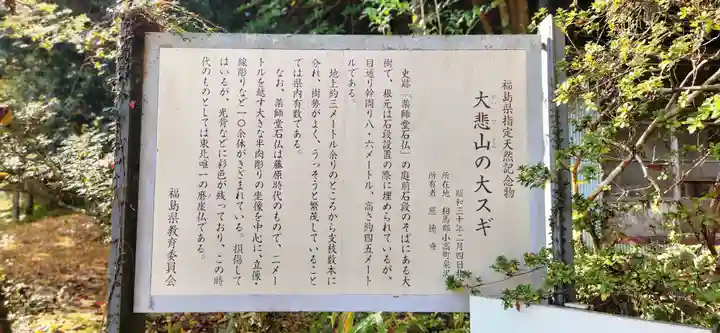 福島県指定天然記念物
大悲山の大スギ
昭和三十年二月四日指
所在地 相馬郡小高町泉沢
所有者 慈徳寺
史跡「薬師堂石仏」の庭前石段のそばにある大
樹で、根元は石段設置の際に埋められているが、
目通り幹周り八・六メートル、高さ約四五メート
ルである。
地上約三メートル余りのところから支枝数本に
分れ、樹勢がよく、うっそうと繁茂していること
では県内有数である。
なお、薬師堂石仏は藤原時代のもので、二メー
トルを越す大きな半肉彫りの坐像を中心に、立像・
線彫りなど一〇余体がきざまれている。損傷して
はいるが、光背などに彩色が残っており、この時
代のものとしては東北唯一の磨崖仏である。
福島県教育委員会